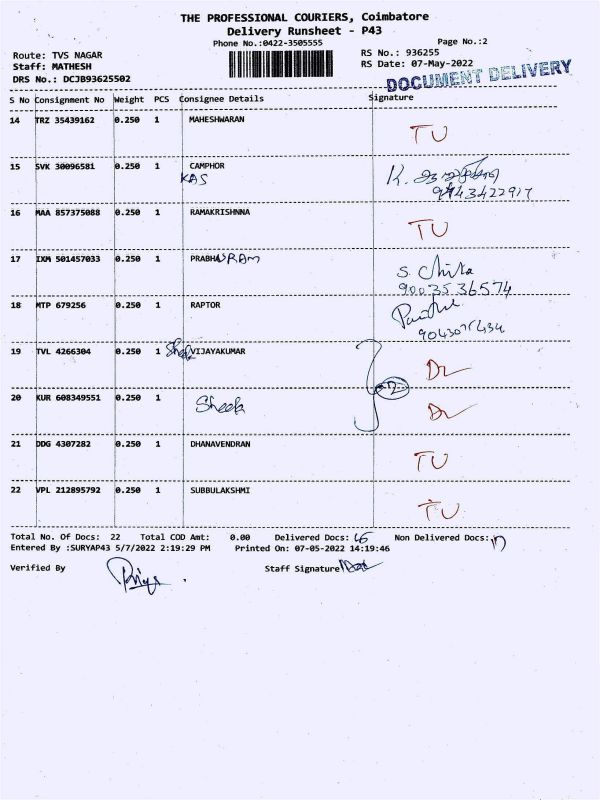 THE PROFESSIONAL COURIERS, Coimbatore
Delivery Runsheet - P43
Phone No.:0422-3505555
Page No.:2
Route: TVS NAGAR
RS No.: 936255
Staff: MATHESH
RS Date: 07-May-2022
DRS No.: DCJB93625502
DOCUMENT DELIVERY
S No Consignment No Weight PCS Consignee Details Signature
14 TRZ 35439162 0.250 1 MAHESHWARAN TU
15 SVK 30096581 0.250 1 CAMPHOR
KAS
16 MAA 857375088 0.250 1 RAMAKRISHNNA TU
17 IXM 501457033 0.250 1 PRABHASRAM
S. Chitra
9003536574
18 MTP 679256 0.250 1 RAPTOR
19 TVL 4266304 0.250 1 VIJAYAKUMAR DL
2
20 KUR 608349551 0.250 1 Sheela DL
21 DDG 4307282 0.250 1 DHANAVENDRAN TU
22 VPL 212895792 0.250 1 SUBBULAKSHMI TU
Total No. Of Docs: 22 Total COD Amt: 0.00 Delivered Docs: Non Delivered Docs:
Entered By :SURYAP43 5/7/2022 2:19:29 PM Printed On: 07-05-2022 14:19:46
Verified By Staff Signature
Priya